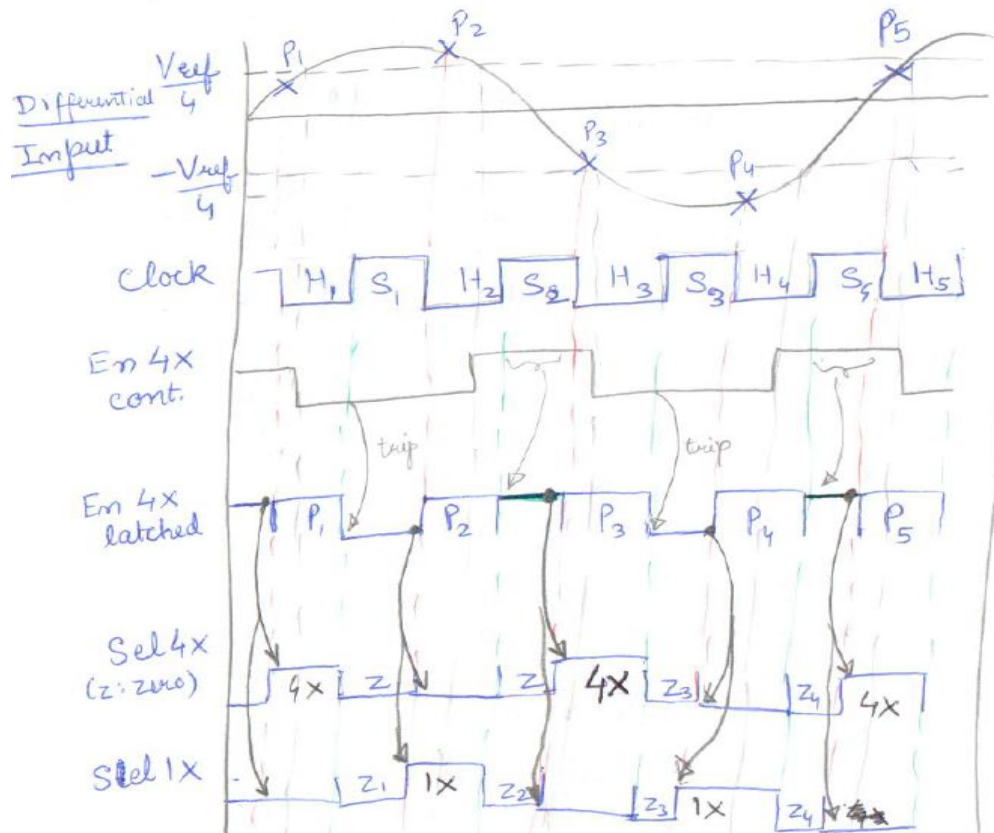 P1 P2 P5
Vref/4
Differential
Input
P3 P4
-Vref/4
Clock H1 S1 H2 S2 H3 S3 H4 S4 H5
En 4X
cont.
trip trip
En 4X
latched
P1 P2 P3 P4 P5
Sel 4X
(Z: Zero)
4X Z Z 4X Z3 Z4 4X
Sel 1X Z1 1X Z2 Z3 1X Z4